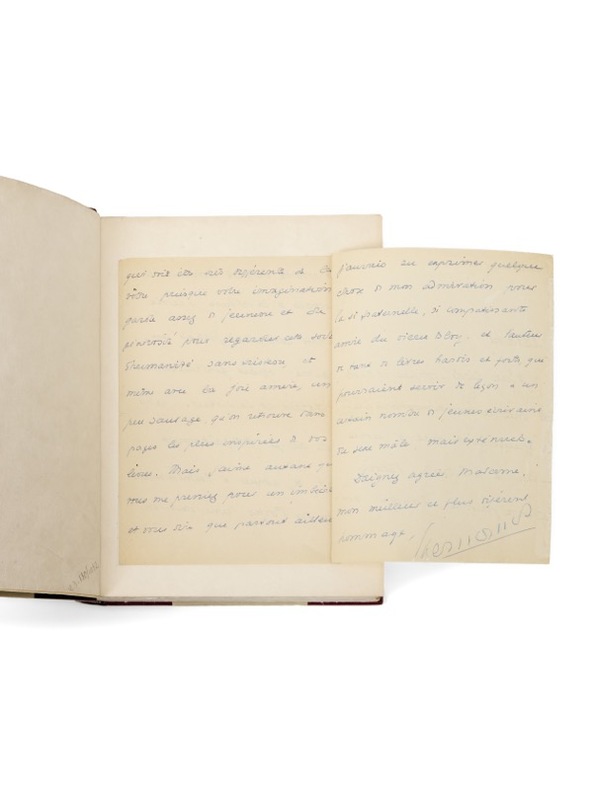 qui soit très différente de la
vôtre, puisque votre imagination
garde assez de jeunesse et de
générosité pour regarder cette
d'humanité sans et
même avec la joie amère, un
peu sauvage, qu'on retrouve dans
pages les plus inspirées de vos
livres. Mais j'aime autant
vous me preniez pour un
et vous que partout ailleurs
j'aurais su exprimer quelque
chose de mon admiration pour
la si fraternelle, si compatissante
amie du vieux Bloy, et l'auteur
de tant de livres hardis et forts, qui
pourraient servir de leçon à un
certain nombre de jeunes écrivains
du sexe mâle, mais
Daignez agréer, Madame,
mon meilleur et plus déférent
hommage.
Bernanos